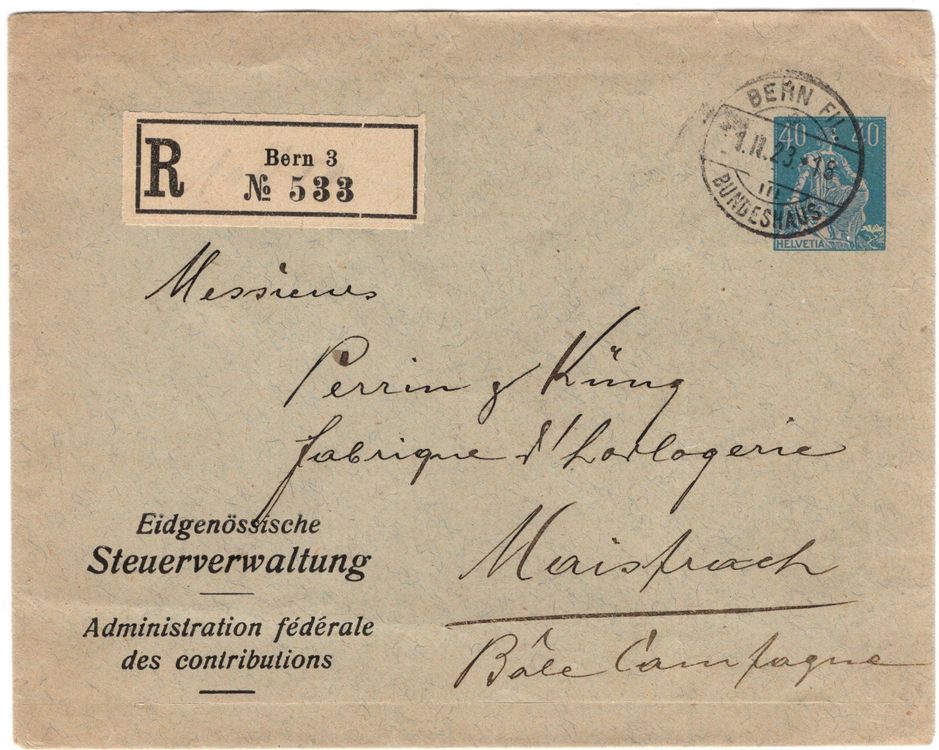 R
Bern 3
№ 533
BERN FIL.
1.II.23.-18
BUNDESHAUS
40
HELVETIA
Messieurs
Perrin & Küng
fabrique d'horlogerie
Maisprach
Bâle Campagne
Eidgenössische
Steuerverwaltung
Administration fédérale
des contributions